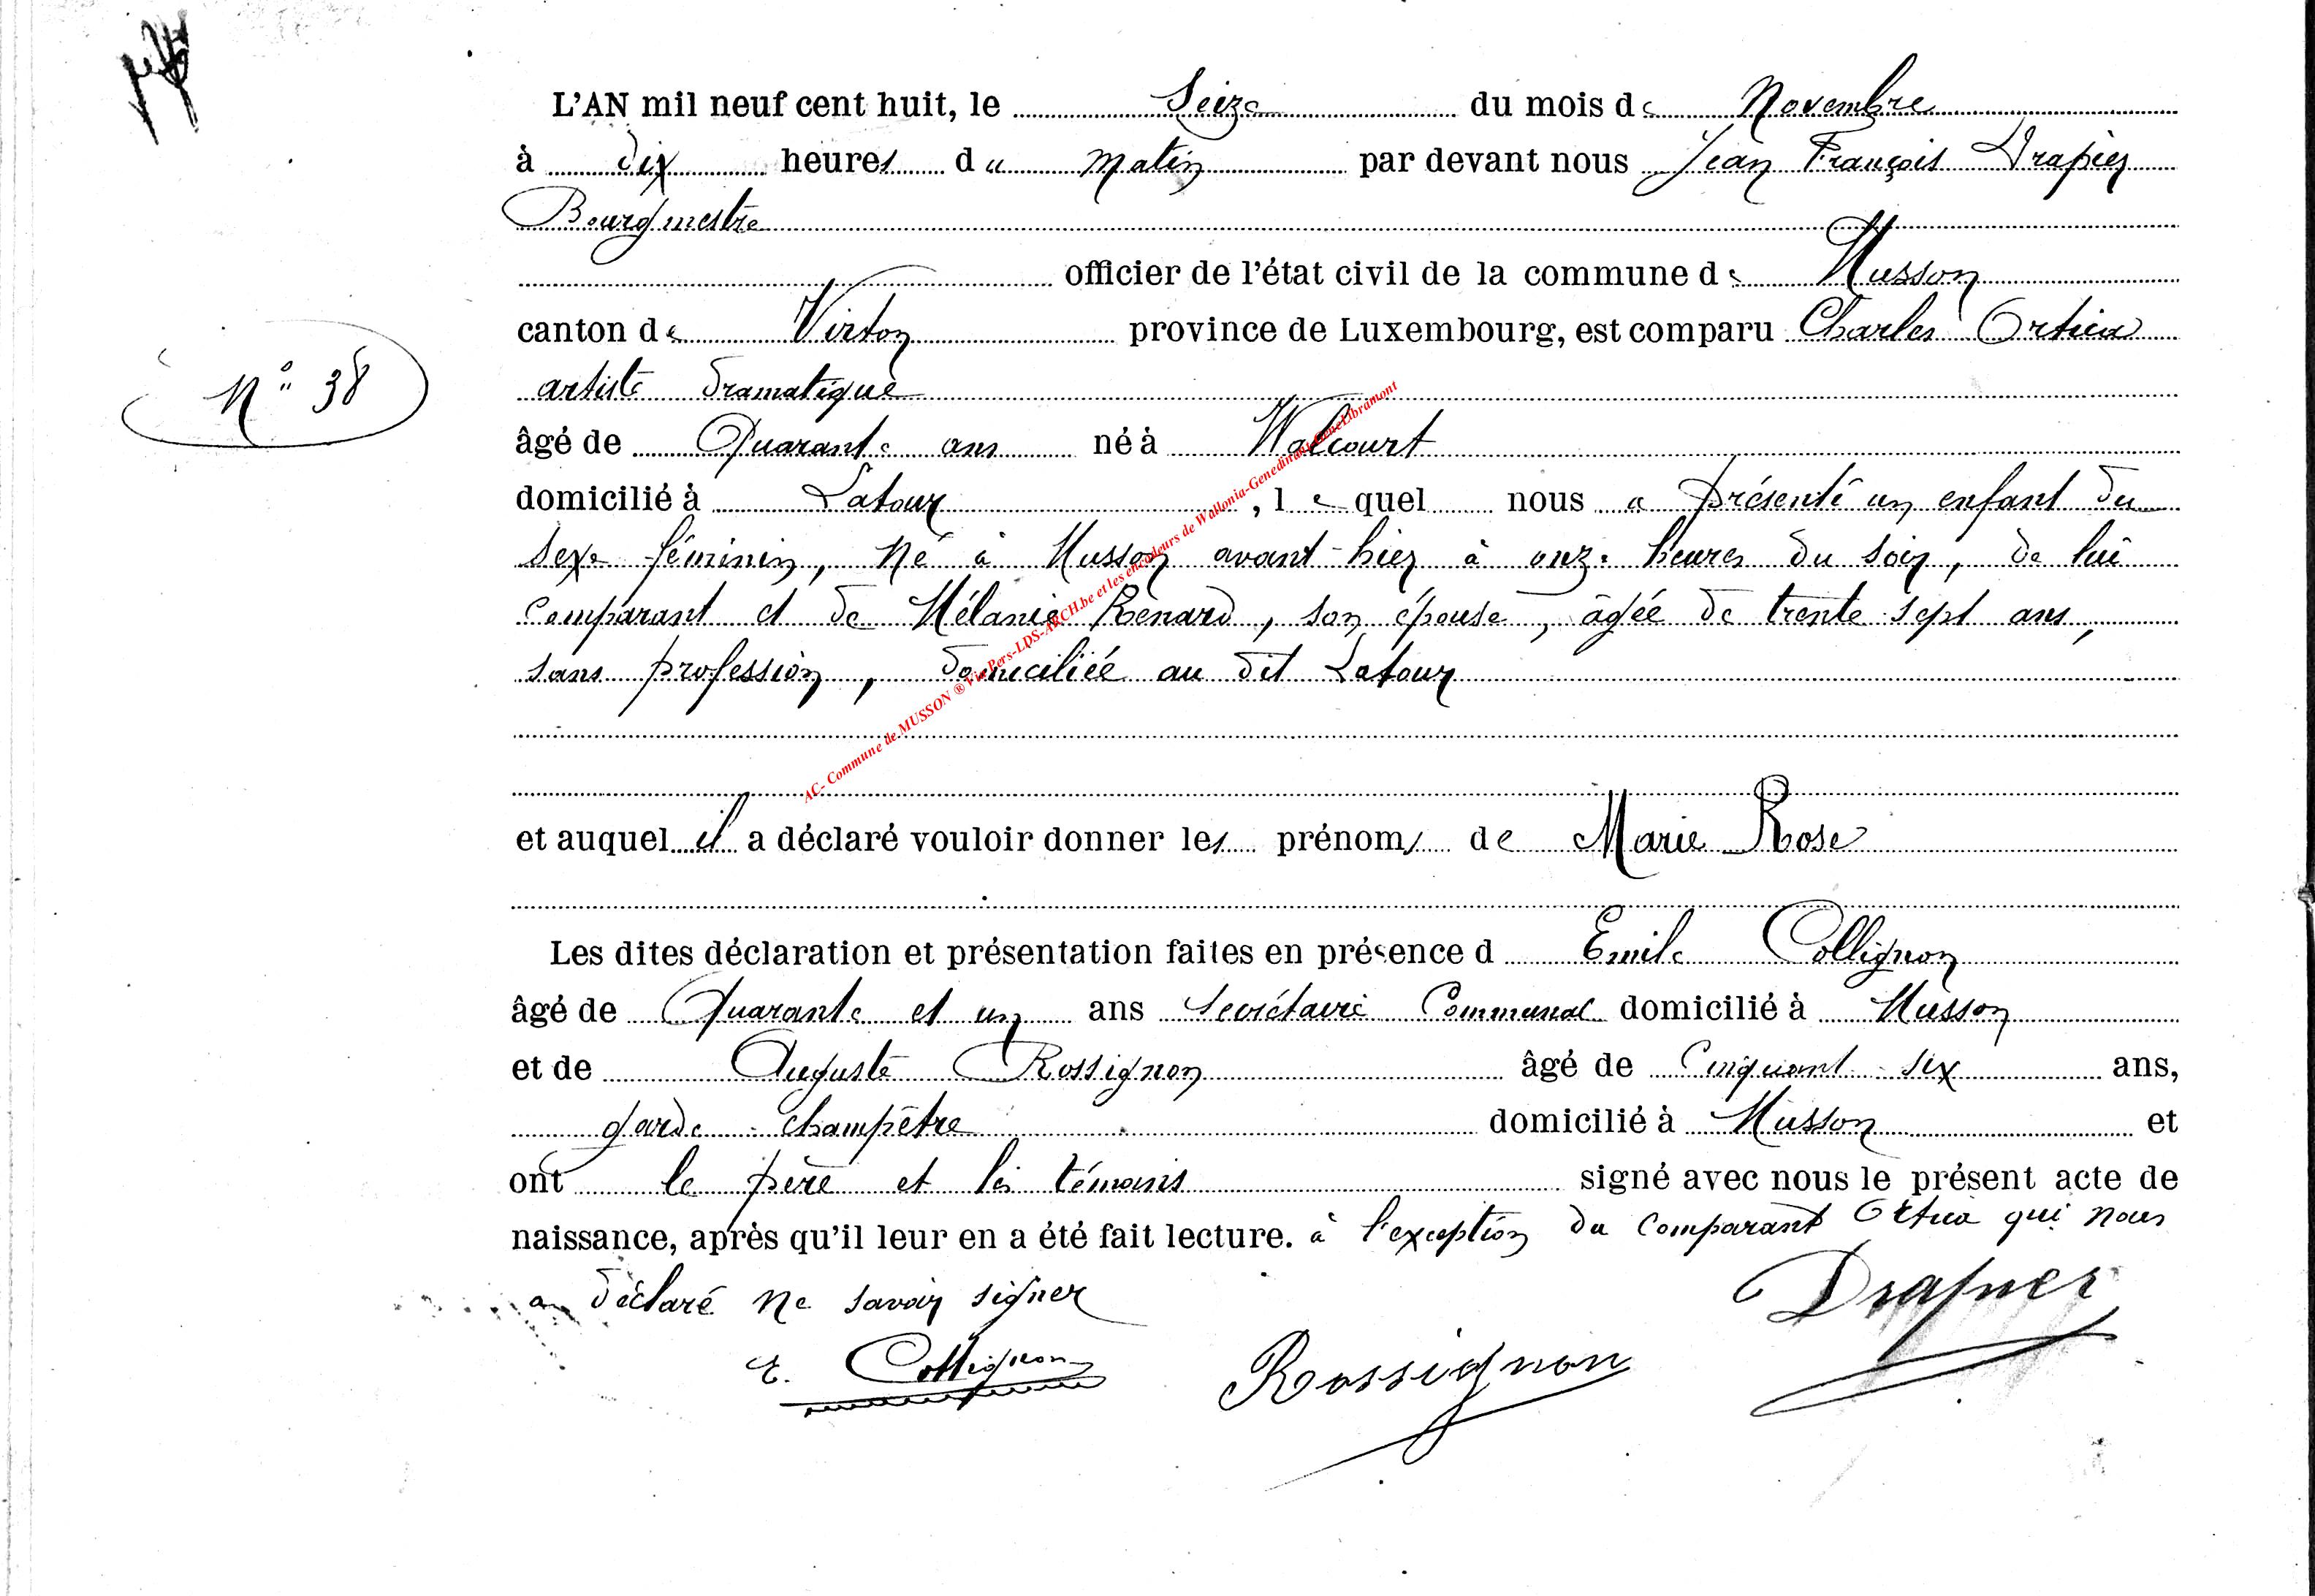 L'AN mil neuf cent huit, le Seize du mois de Novembre
à dix heures du matin par devant nous Jean François Drapier
Bourgmestre
officier de l'état civil de la commune de Musson
canton de Virton province de Luxembourg, est comparu Charles Ortica
N° 38
artiste dramatique
âgé de Quarante ans né à Walcourt
domicilié à Latour, lequel nous a présenté un enfant du
sexe féminin, né à Musson avant-hier à onze heures du soir, de lui
comparant et de Mélanie Renard, son épouse, âgée de trente sept ans,
sans profession, domiciliée au dit Latour
AC- Commune de MUSSON ® Via Pers-LDS-ARCH.be et les encodeurs de Wallonia-Genedinant-GeneLibramont
et auquel il a déclaré vouloir donner les prénoms de Marie Rose
Les dites déclaration et présentation faites en présence d Emile Collignon
âgé de Quarante et un ans Secrétaire Communal domicilié à Musson
et de Auguste Rossignon âgé de Cinquante six ans,
garde champêtre domicilié à Musson et
ont le père et les témoins signé avec nous le présent acte de
naissance, après qu'il leur en a été fait lecture. à l'exception du comparant Ortica qui nous
a déclaré ne savoir signer
Drapier
E. Collignon Rossignon